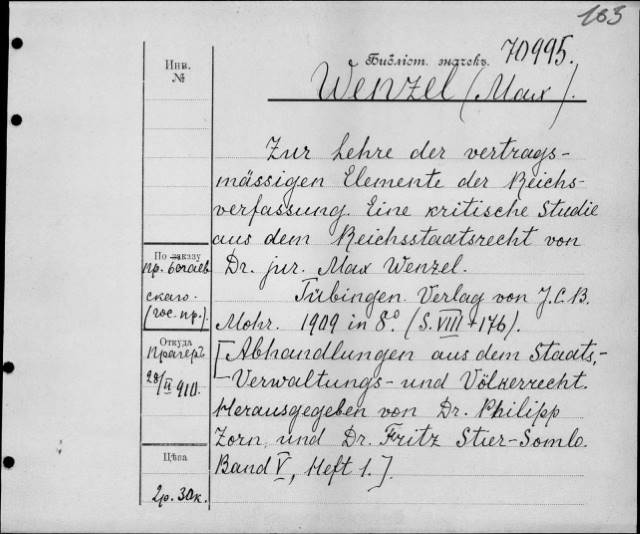 163
Инв.
№
Библіот. значекъ. 70995.
Wenzel (Max).
Zur Lehre der vertrags-
mässigen Elemente der Reichs-
verfassung. Eine kritische Studie
aus dem Reichsstaatsrecht von
Dr. jur. Max Wenzel.
Tübingen. Verlag von J.C.B.
Mohr. 1909 in 8.° (S. VIII + 176).
[Abhandlungen aus dem Staats,-
-Verwaltungs- und Völkerrecht.
Herausgegeben von Dr. Philipp
Zorn, und Dr. Fritz Stier-Somlo.
Band V, Heft 1.].
По заказу
пр.
скаго.
(гос. пр.).
Откуда
Прагеръ
28/II 910.
Цѣна
2р. 30к.